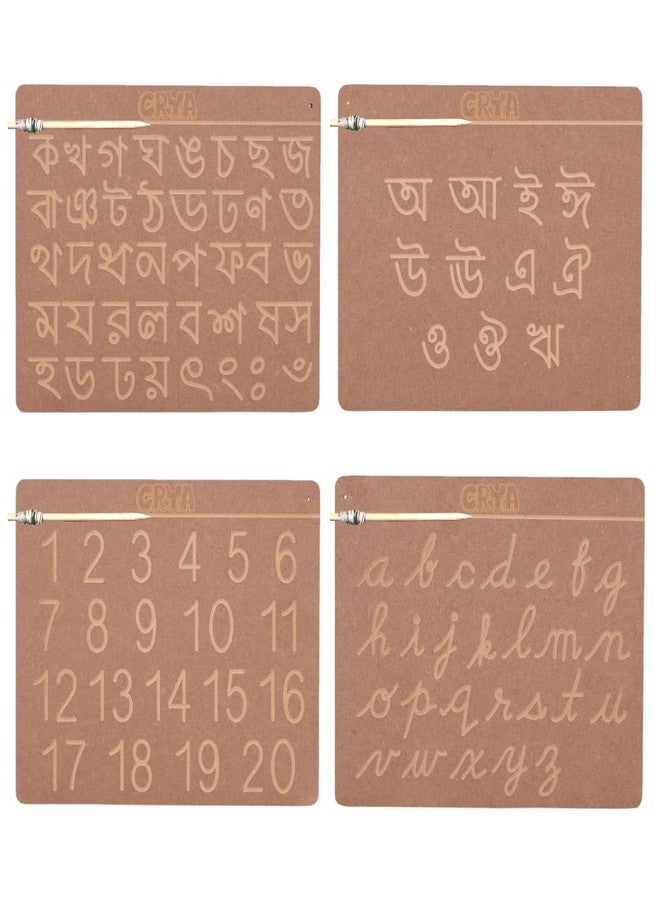 CRYA
ক খ গ ঘ ঙ চ ছ জ
ঝ ঞ ট ঠ ড ঢ ণ ত
থ দ ধ ন প ফ ব ভ
ম য র ল ব শ ষ স
হ ড ঢ য় ৎ ং ঃ ঁ
CRYA
অ আ ই ঈ
উ ঊ এ ঐ
ও ঔ ঋ
CRYA
1 2 3 4 5 6
7 8 9 10 11
12 13 14 15 16
17 18 19 20
CRYA
a b c d e f g
h i j k l m n
o p q r s t u
v w x y z